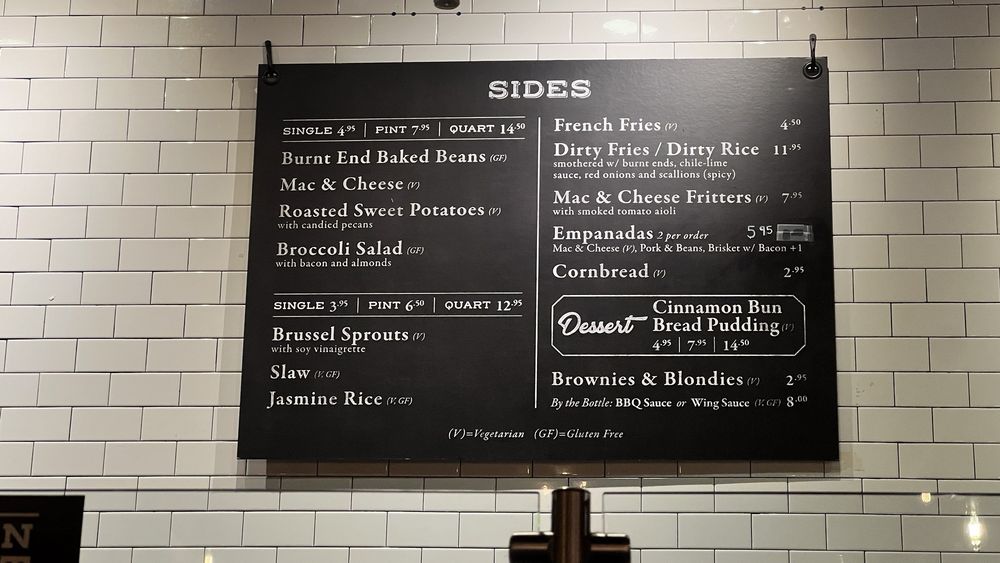 SIDES
SINGLE 4.95 | PINT 7.95 | QUART 14.50
Burnt End Baked Beans (GF)
Mac & Cheese (V)
Roasted Sweet Potatoes (V)
with candied pecans
Broccoli Salad (GF)
with bacon and almonds
SINGLE 3.95 | PINT 6.50 | QUART 12.95
Brussel Sprouts (V)
with soy vinaigrette
Slaw (V, GF)
Jasmine Rice (V, GF)
French Fries (V) 4.50
Dirty Fries / Dirty Rice 11.95
smothered w/ burnt ends, chile-lime
sauce, red onions and scallions (spicy)
Mac & Cheese Fritters (V) 7.95
with smoked tomato aioli
Empanadas 2 per order 5 95
Mac & Cheese (V), Pork & Beans, Brisket w/ Bacon +1
Cornbread (V) 2.95
Dessert
Cinnamon Bun
Bread Pudding (V)
4.95 | 7.95 | 14.50
Brownies & Blondies (V) 2.95
By the Bottle: BBQ Sauce or Wing Sauce (V, GF) 8.00
(V)=Vegetarian (GF)=Gluten Free
N